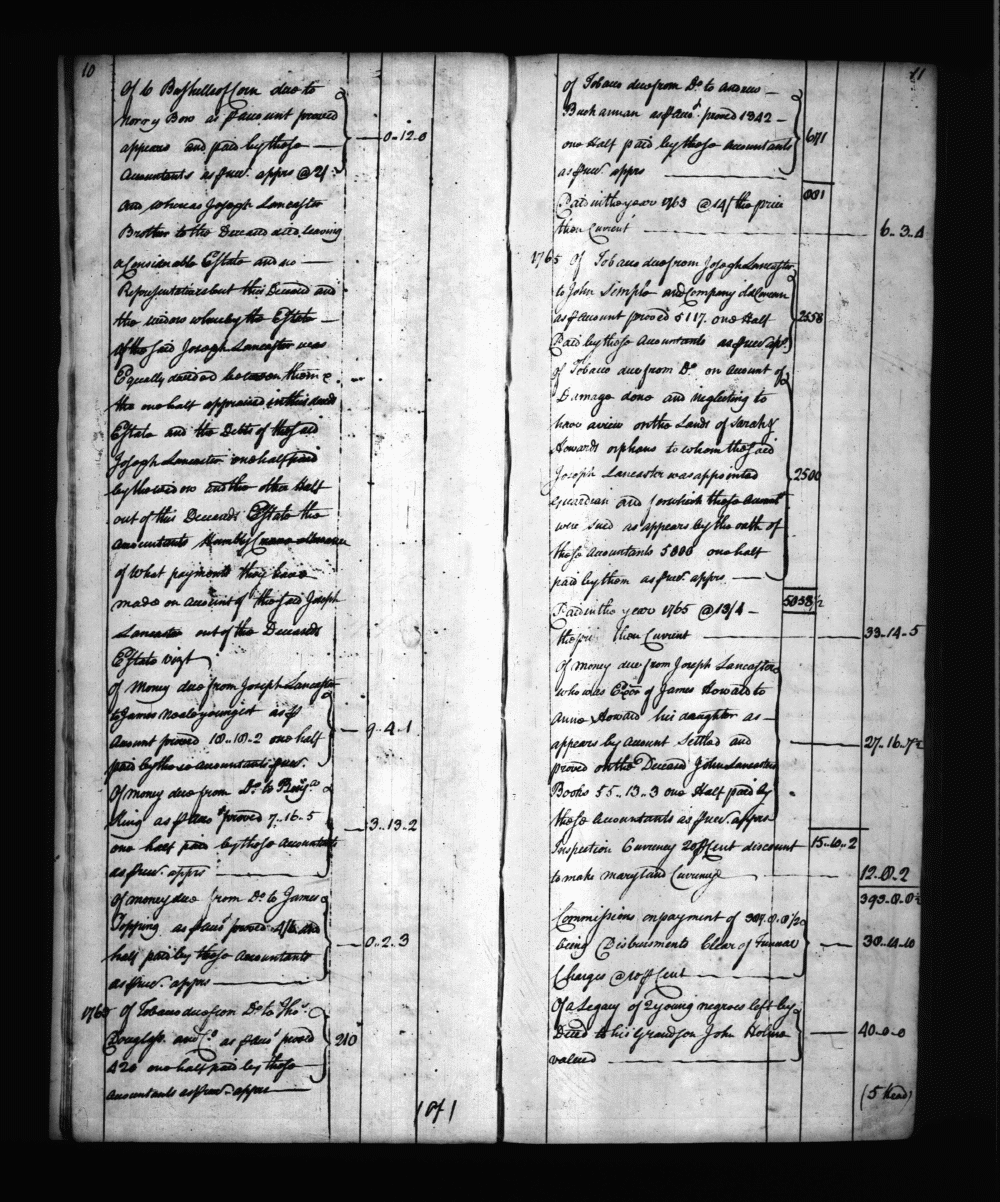 10
Of 6 Bushells of Corn due to
Norry Bow as  account proved
appears and paid by these
Accountants as  apprs @ 2/
0..12..0
And whereas Joseph Lancaster
Brother to the Deceased died leaving
a Considerable Estate and no
Representatives but this Deceased and
the widow whereby the Estate
of the said Joseph Lancaster was
Equally divided between them &
the one half appraised in this deced
Estate and the Debts of the said
Joseph Lancaster one half paid
by the widow and the other Half
out of this Deceaseds Estate the
Accountants Humbly Crave allowance
of What payments they have
made on account of the said Joseph
Lancaster out of the Deceaseds
Estate vizt
Of Money due from Joseph Lancaster
to James Neale youngest as
Account proved 18..8..2 one half
paid by these Accountants
9..4..1
Of money due from Do to Benja
King as  Acct proved 7..16..5
one half paid by these Accountants
as  apprs
3..13..2
Of money due from Do to James
Topping as  acct proved 4/6 one
half paid by these Accountants
as  apprs
0..2..3
1763 Of Tobacco due from Do to Thos
Douglass and Co as  acct proved
420 one half paid by these
Accountants as  apprs
210
11
Of Tobacco due from Do to Andrew
Buchannan as  Acct proved 1342
one Half paid by these Accountants
as  apprs
671
881
Paid in the year 1763 @ 14/ the price
then Current
6..3..4
1765 Of Tobacco due from Joseph Lancaster
to John Semple and Company
as  Account proved 5117. one Half
Paid by these Accountants as
2558
Of Tobacco due from Do on Account of
Damage done and neglecting to
have a view on the Lands of Sarah
Howards orphans to whom the said
Joseph Lancaster was appointed
Guardian and for which these Accountts
were Sued as appears by the oath of
these Accountants 5000 one half
paid by them as  apprs
2500
5058 1/2
Paid in the year 1765 @ 13/4
the price then Current
33..14..5
Of money due from Joseph Lancaster
who was Exor of James Howard to
Anne Howard his daughter as
appears by account Settled and
proved on the Deceased John Lancasters
Books 55..13..3 one Half paid by
these Accountants as  apprs
27..16..7 1/2
Inspection Currency 20  Cent discount
15..10..2
to make Maryland Currency
12..8..2
393..8..0 1/2
Commissions on payment of
being Disbursments Clear of Funeral
Charges @ 10  Cent
Of a Legacy of 2 young negroes left by
Deced to his Grandson John Holme
valued
40..0..0
(5 Head)